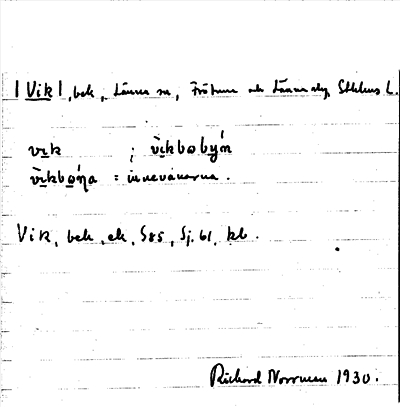 |Vik|, bek, Länna sn, Frötuna och Länna skg, Sthlms L.
vik ; vikbobyń
vikbońa = innevånarna.
Vik, bek, ek, S85, Sj. 61, kb.
Richard Norrman 1930.